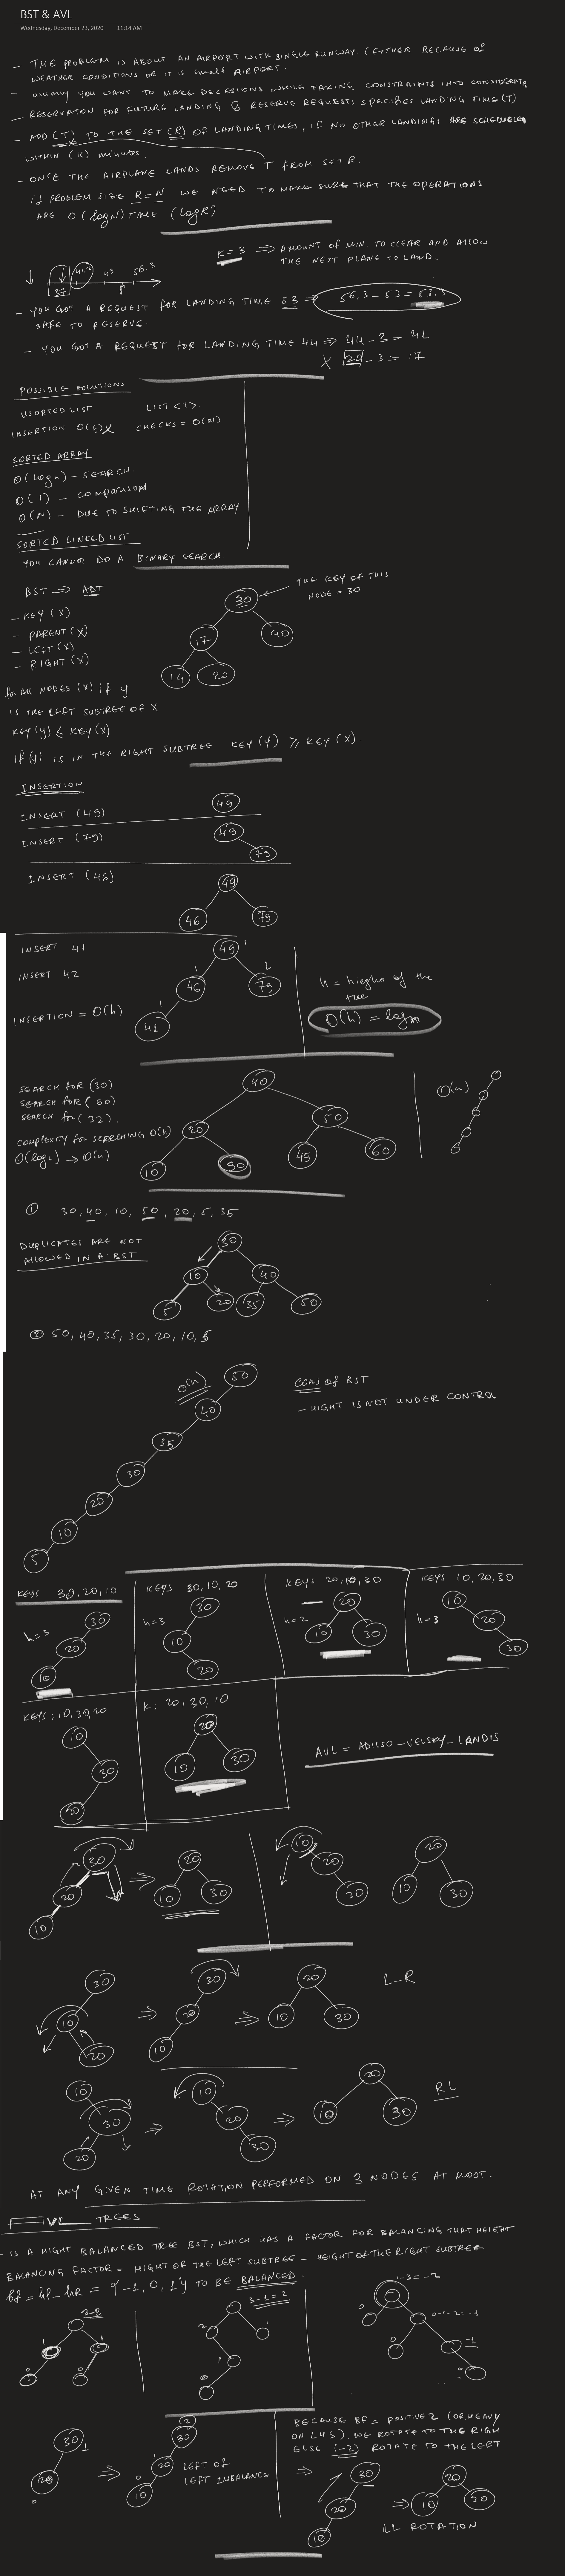 BST & AVL
Wednesday, December 23, 2020 11:14 AM
- THE PROBLEM IS ABOUT AN AIRPORT WITH SINGLE RUNWAY. (EITHER BECAUSE OF
WEATHER CONDITIONS OR IT IS SMALL AIRPORT.
- USUALLY YOU WANT TO MAKE DECESIONS WHILE TAKING CONSTRAINTS INTO
- RESERVATION FOR FUTURE LANDING & RESERVE REQUESTS SPECIFIES LANDING TIME (T)
- ADD (T) TO THE SET (R) OF LANDING TIMES, IF NO OTHER LANDINGS ARE SCHEDULED
WITHIN (K) minutes.
- ONCE THE AIRPLANE LANDS REMOVE T FROM SET R.
if PROBLEM SIZE R = N WE NEED TO MAKE SURE THAT THE OPERATIONS
ARE O(logN) TIME (LogR)
K = 3 => AMOUNT OF MIN. TO CLEAR AND ALLOW
THE NEXT PLANE TO LAND.
37 41,2 49 56.3
- YOU GOT A REQUEST FOR LANDING TIME 53 => 56,3 - 53 = 53.3
SAFE TO RESERVE.
- YOU GOT A REQUEST FOR LANDING TIME 44 => 44 - 3 = 41
X 20 - 3 = 17
POSSIBLE SOLUTIONS
USORTED LIST LIST <T>.
INSERTION O(1) X CHECKS = O(N)
SORTED ARRAY
O(logn) - SEARCH.
O(1) - COMPARISON
O(N) - DUE TO SHIFTING THE ARRAY
SORTED LINKED LIST
YOU CANNOT DO A BINARY SEARCH.
BST => ADT
THE KEY OF THIS
NODE = 30
- KEY (X)
- PARENT (X)
- LEFT (X)
- RIGHT (X)
30
17 40
14 20
for All NODES (X) if y
IS THE LEFT SUBTREE OF X
KEY (y) ≤ KEY (X)
If (y) IS IN THE RIGHT SUBTREE KEY (Y) ≥ KEY (X).
INSERTION
INSERT (49) 49
INSERT (79) 49
79
INSERT (46) 49
46 79
INSERT 41 49 1
INSERT 42 1 46 2 79
INSERTION = O(h) 1 41
h = hieght of the
tree
O(h) = logn
SEARCH FOR (30)
SEARCH FOR (60)
SEARCH for (32).
COMPLEXITY FOR SEARCHING O(h)
O(logn) -> O(n)
40
20 50
10 30 45 60
O(n)
① 30, 40, 10, 50, 20, 5, 35
DUPLICATES ARE NOT
ALLOWED IN A BST
30
10 40
5 20 35 50
② 50, 40, 35, 30, 20, 10, 5
O(n) 50
40
35
30
20
10
5
CONS of BST
- HIGHT IS NOT UNDER CONTROL
KEYS 30, 20, 10
h=3
30
20
10
KEYS 30, 10, 20
h=3
30
10
20
KEYS 20, 10, 30
h=2
20
10 30
KEYS 10, 20, 30
h-3
10
20
30
KEYS, 10, 30, 20
10
30
20
K: 20, 30, 10
20
10 30
AVL = ADILSO - VELSKY - LANDIS
30
20
10
=>
20
10 30
10
20
30
20
10 30
30
10
20
=>
30
20
10
=>
20
10 30
L-R
10
30
20
=>
10
20
30
=>
20
10 30
RL
AT ANY GIVEN TIME ROTATION PERFORMED ON 3 NODES AT MOST.
VL TREES
- IS A HIGHT BALANCED TREE BST, WHICH HAS A FACTOR FOR BALANCING THAT HEIGHT
BALANCING FACTOR = HIGHT OF THE LEFT SUBTREE - HEIGHT OF THE RIGHT SUBTREE
bf = hl - hR = {-1, 0, 1} TO BE BALANCED.
3-1=2
1-3=-2
30 1
20
0
=>
(2)
30
1 20
0 10
LEFT OF
LEFT IMBALANCE
BECAUSE BF = POSITIVE 2 (OR HEAVY
ON LHS). WE ROTATE TO THE RIGH
ELSE (-2) ROTATE TO THE LEFT
=>
30
20
10
=>
20
10 30
LL ROTATION